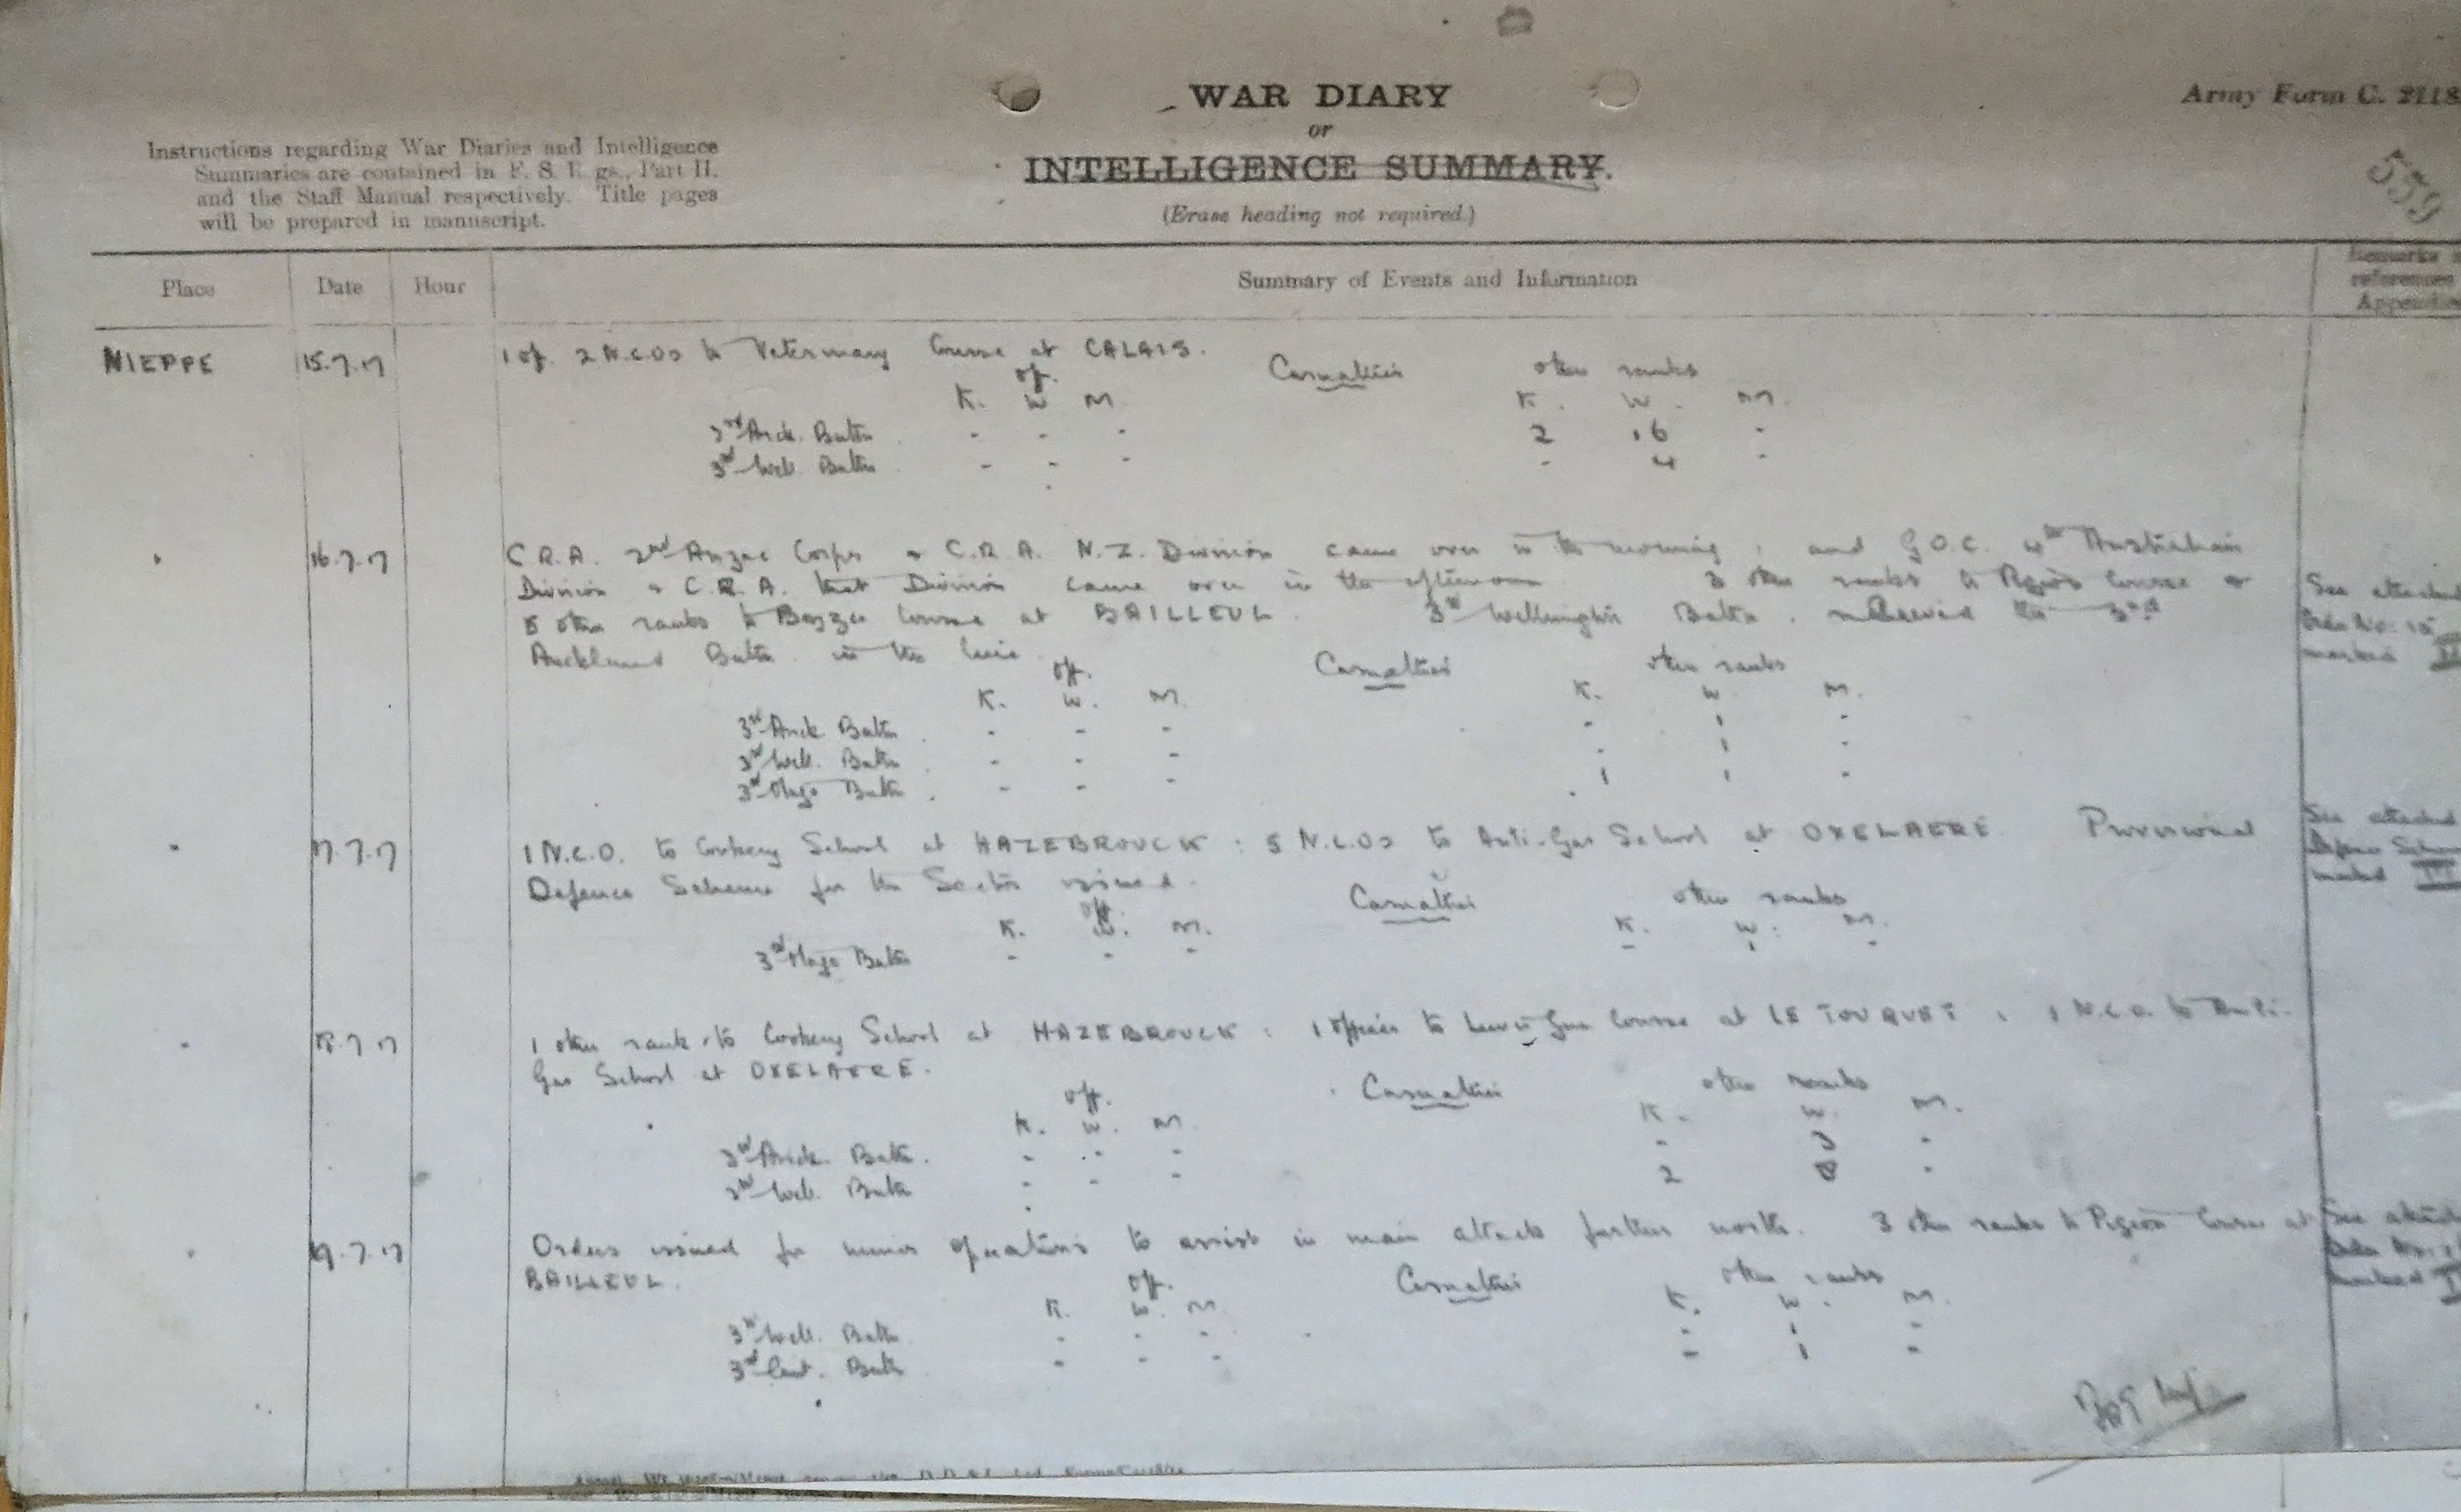 WAR DIARY
or
INTELLIGENCE SUMMARY.
(Erase heading not required.)
Army Form C. 2118
539
Instructions regarding War Diaries and Intelligence
Summaries are contained in F. S. Regs., Part II.
and the Staff Manual respectively. Title pages
will be prepared in manuscript.
Place Date Hour Summary of Events and Information Remarks references Appendic
NIEPPE 15.7.17 1 of. 2 N.C.Os to Veterinary Course at CALAIS.
Casualties
of. other ranks
K. W M. K. W. M.
3rd Auck. Battn - - - 2 16 -
3rd Well. Battn - - - - 4 -
" 16.7.17 C.R.A. 2nd Anzac Corps & C.R.A. N.Z. Division came over in the morning; and G.O.C. 4th Australian
Division & C.R.A. that Division came over in the afternoon 3 other ranks to Pigeon Course &
5 other ranks to Buzzer Course at BAILLEUL. 3rd Wellington Battn. relieved the 3rd
Auckland Battn. in the line
See attached
Order No. 15
marked
Casualties
off. other ranks
K. W. M. K. W. M.
3rd Auck Battn - - - - 1 -
3rd Well. Battn - - - - 1 -
3rd Otago Battn - - - 1 1 -
" 17.7.17 1 N.C.O. to Cookery School at HAZEBROUCK : 5 N.C.Os to Anti-Gas School at OXELAERE. Provisional
Defence Scheme for the Sector issued.
See attached
Defence Schem
marked
Casualties
off. other ranks
K. W. M. K. W. M.
3rd Otago Battn - - - - 1 -
" 18.7.17 1 other rank to Cookery School at HAZEBROUCK : 1 officer to Lewis Gun Course at LE TOUQUET : 1 N.C.O. to Anti-
Gas School at OXELAERE.
Casualties
off. other ranks
K. W. M. K. W. M.
3rd Auck. Battn. - - - - 3 -
3rd Well. Battn - - - 2 8 -
" 19.7.17 Orders issued for minor operations to assist in main attack further north. 3 other ranks to Pigeon Course at
BAILLEUL.
See attach
Order No.
marked
Casualties
off. other ranks
K. W. M. K. W. M.
3rd Well. Battn - - - - 1 -
3rd Cant. Battn - - - - 1 -